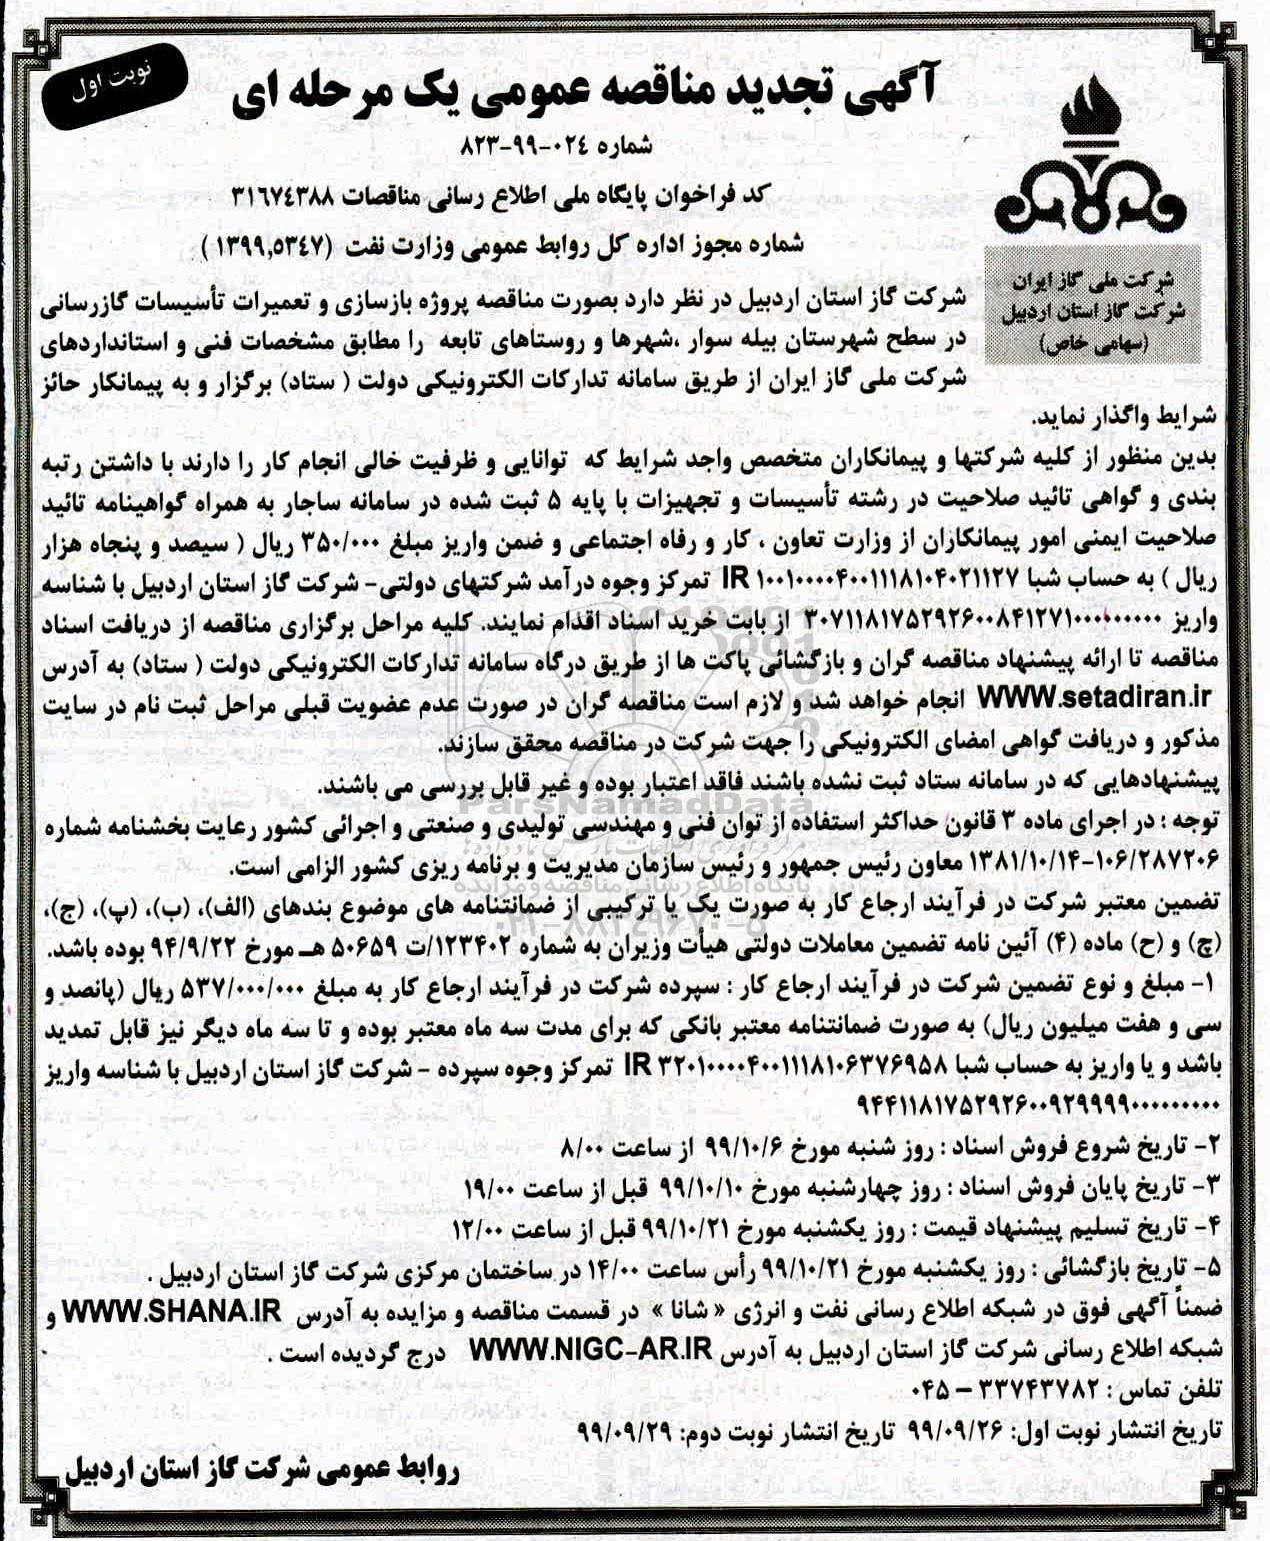 نوبت اول
آگهی تجدید مناقصه عمومی یک مرحله ای
شماره ۰۲٤-۹۹-۸۲۳
کد فراخوان پایگاه ملی اطلاع رسانی مناقصات ۳۱٦۷٤۳۸۸
شماره مجوز اداره کل روابط عمومی وزارت نفت (۱۳۹۹,۵۳٤۷)
شرکت ملی گاز ایران
شرکت گاز استان اردبیل
(سهامی خاص)
شرکت گاز استان اردبیل در نظر دارد بصورت مناقصه پروژه بازسازی و تعمیرات تأسیسات گازرسانی
در سطح شهرستان بیله سوار ،شهرها و روستاهای تابعه را مطابق مشخصات فنی و استانداردهای
شرکت ملی گاز ایران از طریق سامانه تدارکات الکترونیکی دولت ( ستاد) برگزار و به پیمانکار حائز
شرایط واگذار نماید.
بدین منظور از کلیه شرکتها و پیمانکاران متخصص واجد شرایط که توانایی و ظرفیت خالی انجام کار را دارند با داشتن رتبه
بندی و گواهی تائید صلاحیت در رشته تأسیسات و تجهیزات با پایه ۵ ثبت شده در سامانه ساجار به همراه گواهینامه تائید
صلاحیت ایمنی امور پیمانکاران از وزارت تعاون ، کار و رفاه اجتماعی و ضمن واریز مبلغ ۳۵۰/۰۰۰ ریال ( سیصد و پنجاه هزار
ریال ) به حساب شبا IR ۱۰۰۱۰۰۰۰۴۰۰۱۱۱۸۱۰۴۰۲۱۱۲۷ تمرکز وجوه درآمد شرکتهای دولتی- شرکت گاز استان اردبیل با شناسه
واریز ۳۰۷۱۱۸۱۷۵۲۹۲۶۰۰۸۴۱۲۷۱۰۰۰۰۰۰۰۰۰ از بابت خرید اسناد اقدام نمایند. کلیه مراحل برگزاری مناقصه از دریافت اسناد
مناقصه تا ارائه پیشنهاد مناقصه گران و بازگشائی پاکت ها از طریق درگاه سامانه تدارکات الکترونیکی دولت ( ستاد) به آدرس
WWW.setadiran.ir انجام خواهد شد و لازم است مناقصه گران در صورت عدم عضویت قبلی مراحل ثبت نام در سایت
مذکور و دریافت گواهی امضای الکترونیکی را جهت شرکت در مناقصه محقق سازند.
پیشنهادهایی که در سامانه ستاد ثبت نشده باشند فاقد اعتبار بوده و غیر قابل بررسی می باشند.
ParsNamadData
توجه : در اجرای ماده ۳ قانون حداکثر استفاده از توان فنی و مهندسی تولیدی و صنعتی و اجرائی کشور رعایت بخشنامه شماره
۱۰۶/۲۸۷۲۰۶-۱۳۸۱/۱۰/۱۴ معاون رئیس جمهور و رئیس سازمان مدیریت و برنامه ریزی کشور الزامی است.
پایگاه اطلاع رسانی مناقصه و مزایده
تضمین معتبر شرکت در فرآیند ارجاع کار به صورت یک یا ترکیبی از ضمانتنامه های موضوع بندهای (الف)، (ب)، (پ)، (ج)،
۰۲۱-۸۸۳۴۹۶۷۰-۵
(چ) و (ح) ماده (۴) آئین نامه تضمین معاملات دولتی هیأت وزیران به شماره ۱۲۳۴۰۲/ت ۵۰۶۵۹ هـ مورخ ۹۴/۹/۲۲ بوده باشد.
۱- مبلغ و نوع تضمین شرکت در فرآیند ارجاع کار : سپرده شرکت در فرآیند ارجاع کار به مبلغ ۵۳۷/۰۰۰/۰۰۰ ریال (پانصد و
سی و هفت میلیون ریال) به صورت ضمانتنامه معتبر بانکی که برای مدت سه ماه معتبر بوده و تا سه ماه دیگر نیز قابل تمدید
باشد و یا واریز به حساب شبا IR ۳۲۰۱۰۰۰۰۴۰۰۱۱۱۸۱۰۶۳۷۶۹۵۸ تمرکز وجوه سپرده - شرکت گاز استان اردبیل با شناسه واریز
۹۴۴۱۱۸۱۷۵۲۹۲۶۰۰۹۲۹۹۹۹۰۰۰۰۰۰۰۰۰
۲- تاریخ شروع فروش اسناد : روز شنبه مورخ ۹۹/۱۰/۶ از ساعت ۸/۰۰
۳- تاریخ پایان فروش اسناد : روز چهارشنبه مورخ ۹۹/۱۰/۱۰ قبل از ساعت ۱۹/۰۰
۴- تاریخ تسلیم پیشنهاد قیمت : روز یکشنبه مورخ ۹۹/۱۰/۲۱ قبل از ساعت ۱۲/۰۰
۵- تاریخ بازگشائی : روز یکشنبه مورخ ۹۹/۱۰/۲۱ رأس ساعت ۱۴/۰۰ در ساختمان مرکزی شرکت گاز استان اردبیل .
ضمناً آگهی فوق در شبکه اطلاع رسانی نفت و انرژی « شانا » در قسمت مناقصه و مزایده به آدرس WWW.SHANA.IR و
شبکه اطلاع رسانی شرکت گاز استان اردبیل به آدرس WWW.NIGC-AR.IR درج گردیده است .
تلفن تماس : ۳۳۷۴۳۷۸۲ – ۰۴۵
تاریخ انتشار نوبت اول: ۹۹/۰۹/۲۶ تاریخ انتشار نوبت دوم: ۹۹/۰۹/۲۹
روابط عمومی شرکت گاز استان اردبیل